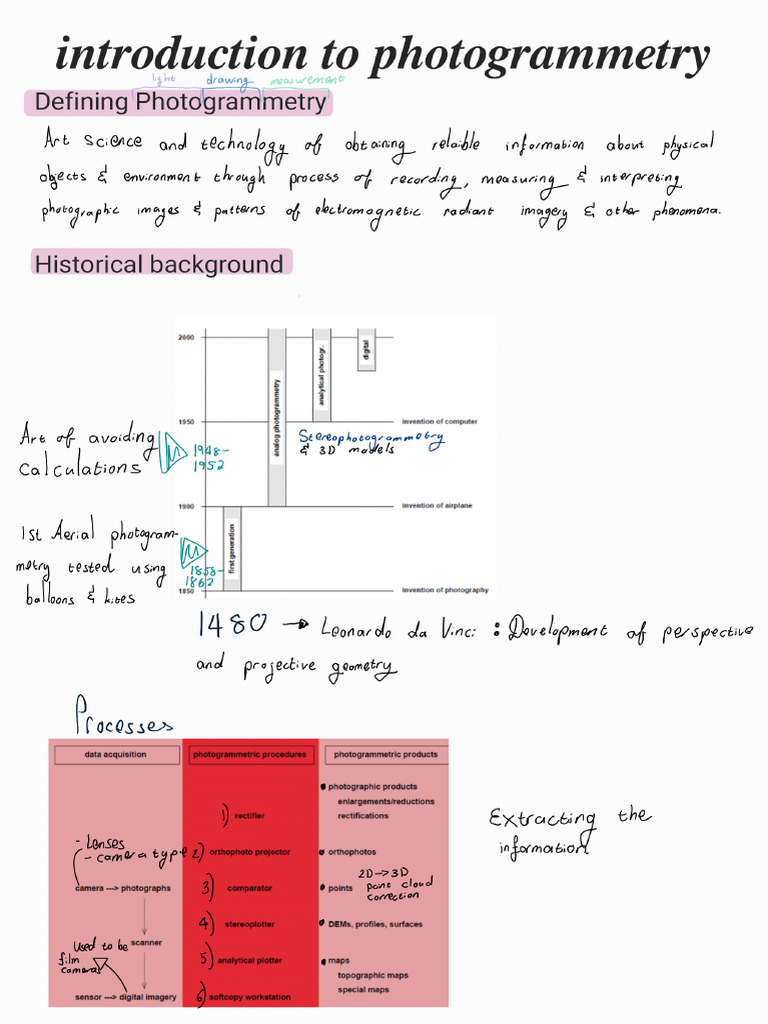 introduction to photogrammetry
light drawing measurement
Defining Photogrammetry
Art science and technology of obtaining relaible information about physical
objects & environment through process of recording, measuring & interpreting
photographic images & patterns of electromagnetic radiant imagery & other phenomena.
Historical background
2000
analytical photogr.
digital
analog photogrammetry
1950
invention of computer
Art of avoiding
Calculations
1948-
1952
Stereophotogrammetry
& 3D models
1900
invention of airplane
1st Aerial photogram-
metry tested using
balloons & kites
1858-
1862
first generation
1850
invention of photography
1480 → Leonardo da Vinci : Development of perspective
and projective geometry
Processes
data acquisition
photogrammetric procedures
photogrammetric products
photographic products
enlargements/reductions
1) rectifier
rectifications
Extracting the
information
- Lenses
- camera type
2) orthophoto projector
orthophotos
2D→3D
point cloud
correction
camera ---> photographs
3) comparator
points
4) stereoplotter
DEMs, profiles, surfaces
used to be
film
cameras
scanner
5) analytical plotter
maps
topographic maps
special maps
sensor ---> digital imagery
6) softcopy workstation